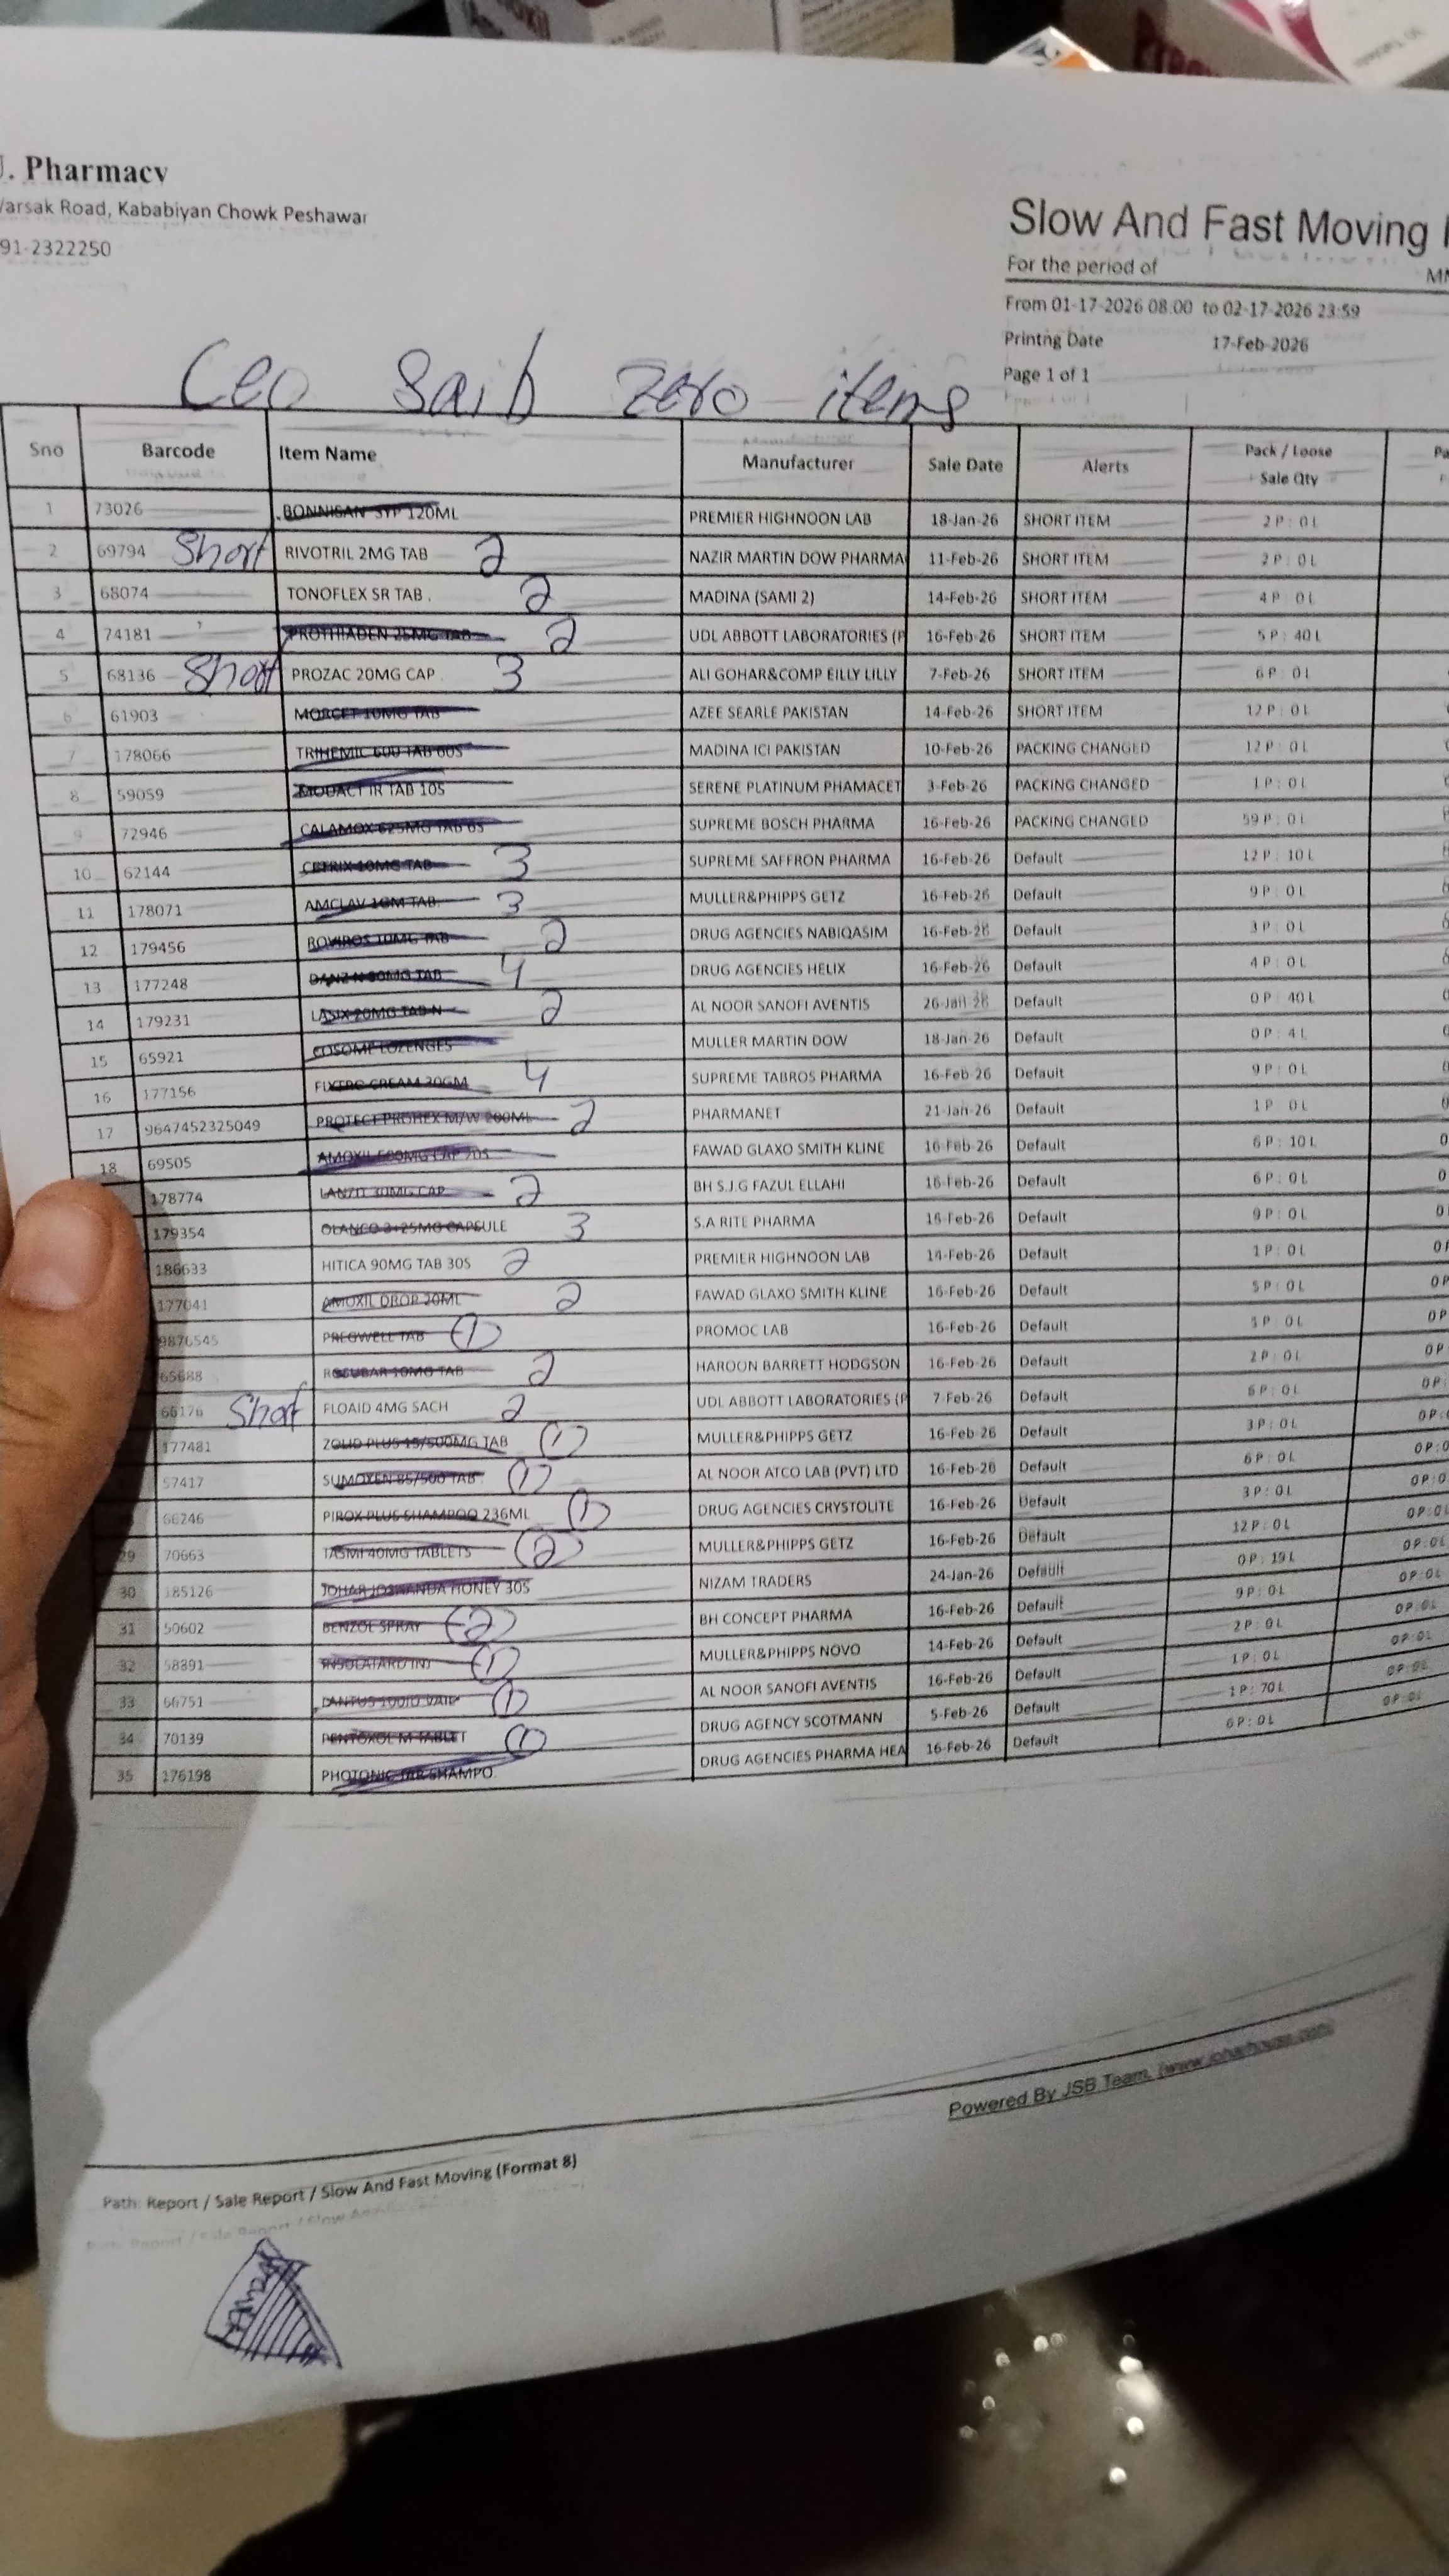 J. Pharmacy
Warsak Road, Kababiyan Chowk Peshawar
91-2322250
Slow And Fast Moving
For the period of
From 01-17-2026 08:00 to 02-17-2026 23:59
Printng Date 17-Feb-2026
Page 1 of 1
Ceo Saib zero items
Sno Barcode Item Name Manufacturer Sale Date Alerts Pack / Loose Sale Qty Pa
1 73026 BONNISAN SYP 120ML PREMIER HIGHNOON LAB 18-Jan-26 SHORT ITEM 2 P : 0 L
2 69794 Short RIVOTRIL 2MG TAB 2 NAZIR MARTIN DOW PHARMA 11-Feb-26 SHORT ITEM 2 P : 0 L
3 68074 TONOFLEX SR TAB . 2 MADINA (SAMI 2) 14-Feb-26 SHORT ITEM 4 P : 0 L
4 74181 PROTHIADEN 25MG TAB 2 UDL ABBOTT LABORATORIES (P 16-Feb-26 SHORT ITEM 5 P : 40 L
5 68136 Short PROZAC 20MG CAP 3 ALI GOHAR&COMP EILLY LILLY 7-Feb-26 SHORT ITEM 6 P : 0 L
6 61903 MORCET 10MG TAB AZEE SEARLE PAKISTAN 14-Feb-26 SHORT ITEM 12 P : 0 L
7 178066 TRIHEMIC 600 TAB 60S MADINA ICI PAKISTAN 10-Feb-26 PACKING CHANGED 12 P : 0 L
8 59059 MODACT IR TAB 10S SERENE PLATINUM PHAMACET 3-Feb-26 PACKING CHANGED 1 P : 0 L
9 72946 CALAMOX 625MG TAB 6S SUPREME BOSCH PHARMA 16-Feb-26 PACKING CHANGED 59 P : 0 L
10 62144 CETRIX 10MG TAB 3 SUPREME SAFFRON PHARMA 16-Feb-26 Default 12 P : 10 L
11 178071 AMCLAV 1GM TAB. 3 MULLER&PHIPPS GETZ 16-Feb-26 Default 9 P : 0 L
12 179456 ROVIROS 10MG TAB 2 DRUG AGENCIES NABIQASIM 16-Feb-26 Default 3 P : 0 L
13 177248 DANZ-N 80MG TAB 4 DRUG AGENCIES HELIX 16-Feb-26 Default 4 P : 0 L
14 179231 LASIX 20MG TAB N 2 AL NOOR SANOFI AVENTIS 26-Jan-26 Default 0 P : 40 L
15 65921 COSOME LOZENGES MULLER MARTIN DOW 18-Jan-26 Default 0 P : 4 L
16 177156 CREAM 30GM 4 SUPREME TABROS PHARMA 16-Feb-26 Default 9 P : 0 L
17 9647452325049 PROTECT PROHEX M/W 200ML 2 PHARMANET 21-Jan-26 Default 1 P : 0 L
18 69505 AMOXIL 500MG CAP 20S FAWAD GLAXO SMITH KLINE 16-Feb-26 Default 6 P : 10 L
178774 LANZO 30MG CAP 2 BH S.J.G FAZUL ELLAHI 16-Feb-26 Default 6 P : 0 L
179354 OLANCO 3+25MG CAPSULE 3 S.A RITE PHARMA 16-Feb-26 Default 9 P : 0 L
186633 HITICA 90MG TAB 30S 2 PREMIER HIGHNOON LAB 14-Feb-26 Default 1 P : 0 L
177041 AMOXIL DROP 20ML 2 FAWAD GLAXO SMITH KLINE 16-Feb-26 Default 5 P : 0 L
9876545 PREGWELL TAB 1 PROMOC LAB 16-Feb-26 Default P : 0 L 0 P
65688 ROSUBAR 10MG TAB 2 HAROON BARRETT HODGSON 16-Feb-26 Default 2 P : 0 L 0 P
66176 Short FLOAID 4MG SACH 2 UDL ABBOTT LABORATORIES (P 7-Feb-26 Default 6 P : 0 L 0 P :
177481 ZOLID PLUS 15/500MG TAB 1 MULLER&PHIPPS GETZ 16-Feb-26 Default 3 P : 0 L 0 P : 0
57417 SUMOXEN 85/500 TAB 1 AL NOOR ATCO LAB (PVT) LTD 16-Feb-26 Default 6 P : 0 L 0 P : 0
66246 PIROX PLUS SHAMPOO 236ML 1 DRUG AGENCIES CRYSTOLITE 16-Feb-26 Default 3 P : 0 L 0 P : 0
29 70663 TASMI 40MG TABLETS 2 MULLER&PHIPPS GETZ 16-Feb-26 Default 12 P : 0 L 0 P : 0 L
30 185126 JOHAR JOSHANDA HONEY 30S NIZAM TRADERS 24-Jan-26 Default 0 P : 19 L 0 P : 0 L
31 50602 BENZOL SPRAY 2 BH CONCEPT PHARMA 16-Feb-26 Default 9 P : 0 L 0 P : 0 L
32 58891 INSULATARD INJ 1 MULLER&PHIPPS NOVO 14-Feb-26 Default 2 P : 0 L 0 P : 0 L
33 66751 LANTUS 100IU VAIL 1 AL NOOR SANOFI AVENTIS 16-Feb-26 Default 1 P : 0 L 0 P : 0 L
34 70139 PENTOXOL M TABLET 1 DRUG AGENCY SCOTMANN 5-Feb-26 Default 1 P : 70 L 0 P : 0 L
35 176198 PHOTONIC TAR SHAMPO DRUG AGENCIES PHARMA HEA 16-Feb-26 Default 6 P : 0 L 0 P : 0 L
Powered By JSB Team. (www.joharhouse.com)
Path: Report / Sale Report / Slow And Fast Moving (Format 8)